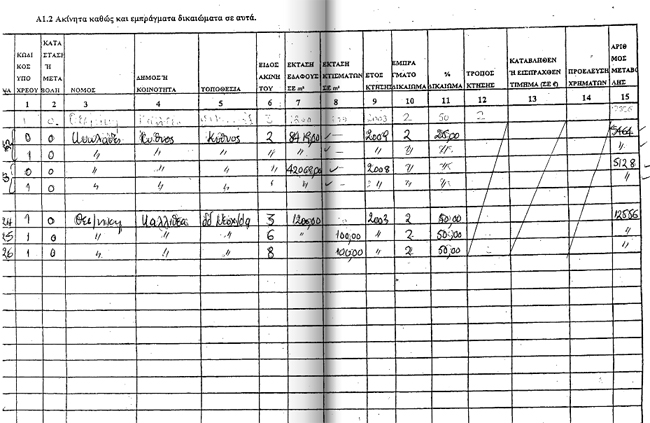 Α1.2 Ακίνητα καθώς και εμπράγματα δικαιώματα σε αυτά.
Α/Α ΚΩΔΙΚΟΣ ΥΠΟΧΡΕΟΥ ΚΑΤΑΣΤΑΣΗ Ή ΜΕΤΑΒΟΛΗ ΝΟΜΟΣ ΔΗΜΟΣ Ή ΚΟΙΝΟΤΗΤΑ ΤΟΠΟΘΕΣΙΑ ΕΙΔΟΣ ΑΚΙΝΗΤΟΥ ΕΚΤΑΣΗ ΕΔΑΦΟΥΣ ΣΕ m² ΕΚΤΑΣΗ ΚΤΙΣΜΑΤΩΝ ΣΕ m² ΕΤΟΣ ΚΤΗΣΗΣ ΕΜΠΡΑΓΜΑΤΟ ΔΙΚΑΙΩΜΑ % ΔΙΚΑΙΩΜΑ ΤΡΟΠΟΣ ΚΤΗΣΗΣ ΚΑΤΑΒΛΗΘΕΝ Ή ΕΙΣΠΡΑΧΘΕΝ ΤΙΜΗΜΑ (ΣΕ €) ΠΡΟΕΛΕΥΣΗ ΧΡΗΜΑΤΩΝ ΑΡΙΘΜΟΣ ΜΕΤΑΒΟΛΗΣ
1 2 3 4 5 6 7 8 9 10 11 12 13 14 15
1 0 2003 2 50 2
0 0 Κυκλάδες Κύθνος Κύθνος 2 8419,00 — 2009 2 25,00 5464
1 0 " " " " " — " " " "
0 0 " " " " 42069,00 — 2008 " " 5128
1 0 " " " " " — " " " "
24 1 0 Θεσ/νίκη Καλλιθέας 5 1200,00 2003 2 50,00 12556
25 1 0 " " " 6 " 100,00 " 2 50,00 "
26 1 0 " " " 8 100,00 " 2 50,00 "